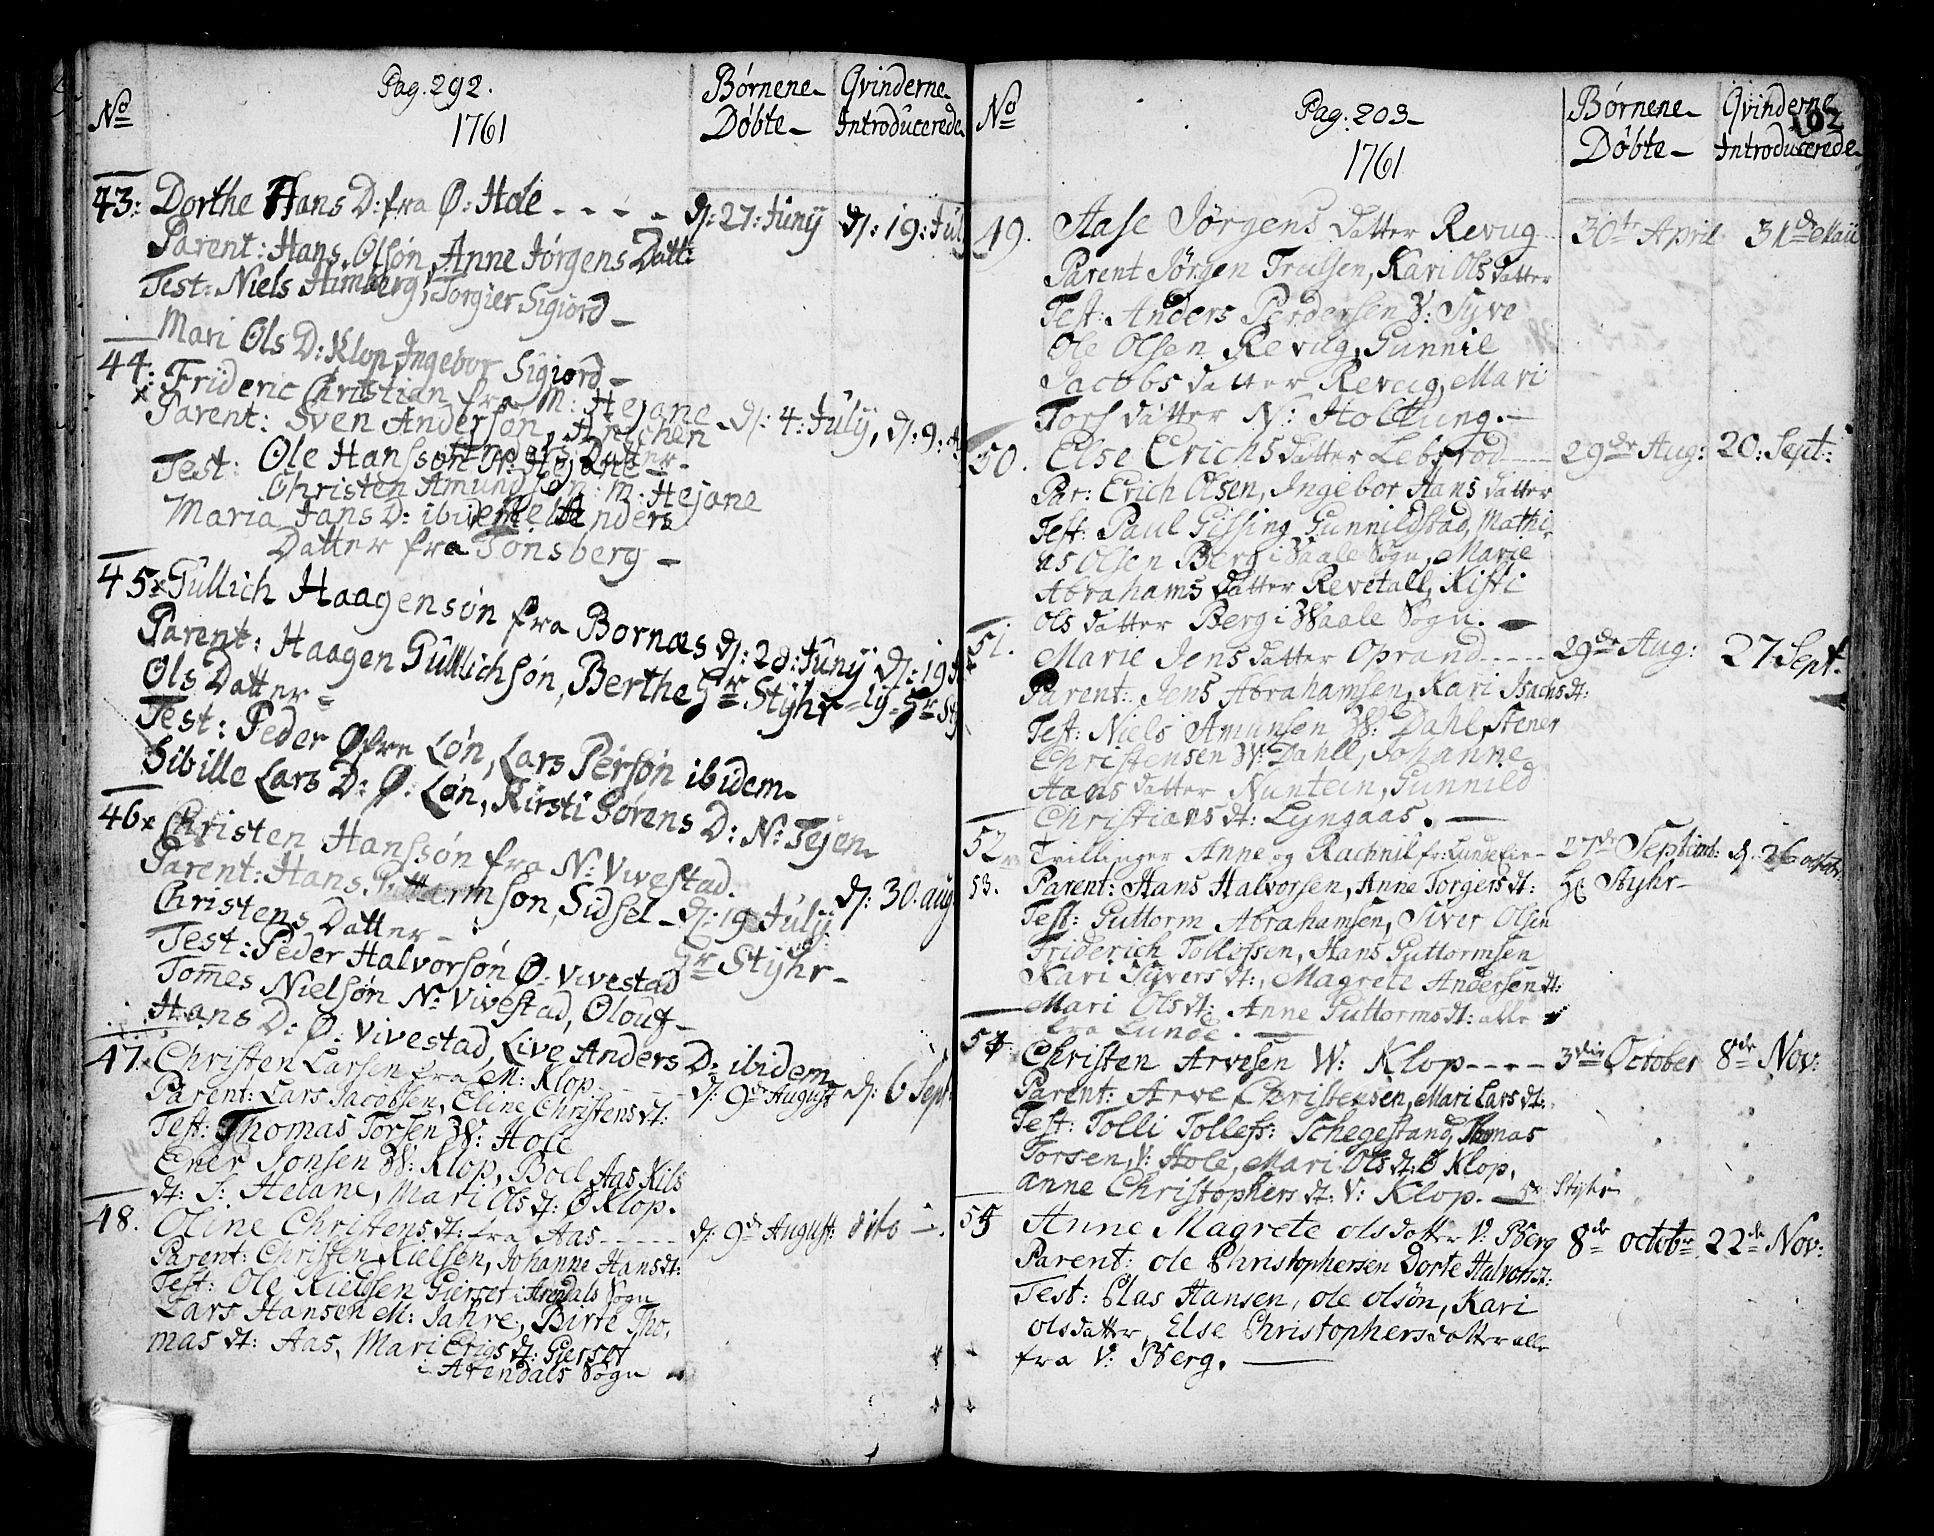 Pag. 292.
1761
No
Børnene
Døbte
Qvinderne
Introducerede
43: Dorthe Hans D: fra Ø: Hole d: 27: Juny d: 19: Jul
Parent: Hans Olsøn, Anne Jørgens Datt:
Test: Niels Himberg, Torgier Sigiord
Mari Ols D: Klop Ingebor Sigiord
44: Frideric Christian fra M: Hejane d: 4: July, d: 9:
Parent: Sven Andersøn, Anichen
Anders Datter
Test: Ole Hanssøn N: Hejane
Christen Amundsøn: M: Hejane
Maria Jans D: ibidem Anders
Datter fra Tønsberg
45 x Gullich Haagensøn fra Bornæs d: 28: Juny d: 19
Parent: Haagen Gullichsøn, Berthe Hr Styhr
Ols Datter
Test: Peder Øfre Løn, Lars Persøn ibidem
Sibille Lars D: Ø: Løn, Kirsti Sørens D: N: Tejen
46 x Christen Hanssøn fra N: Vivestad.
Parent: Hans Guttormsøn, Sidsel d: 19 July d: 30. aug
Christens Datter Hr Styhr
Test: Peder Halvorsøn Ø. Vivestad
Tomes Nielsøn N: Vivestad, Olouf
Hans D: Ø. Vivestad, Live Anders D: ibidem
47. Christen Larsen fra M: Klop d: 9de August d: 6 Sept:
Parent: Lars Jacobsen, Eline Christens dt:
Test: Thomas Torsen W: Hole
Ener Jonsen W: Klop, Boel Aas Kils
dt: S: Helane, Mari Ols dt: Ø Klop.
48. Oline Christens dt: fra Aas d: 9de August: dito
Parent: Christen Nielsen, Johanne Hans dt:
Test: Ole Nielsen Gierset i Arendals Sogn
Lars Hansen M: Jahre, Birte Tho,
mas dt: Aas, Mari Erigs dt: Gierset
i Arendals Sogn
102
Pag. 203
1761
No
Børnene
Døbte
Qvinderne
Introducerede
49. Aase Jørgens datter Revug 30te April 31de Maii
Parent Jørgen Trulsen, Kari Ols datter
Test: Anders Perdersen W: Syve
Ole Olsen Revug, Gunnil
Jacobs datter Revug, Mari
Tors datter N: Holtung.
50. Else Erichs datter Lebsrod 29de Aug: 20: Sept:
Par: Erich Olsen, Ingebor Hans datter
Test: Paul Gissing Gunnildstad, Mathi,
as Olsen Berg i Vaale Sogn, Marie
Abrahams datter Revetall, Kisti
Ols datter Berg i Waale Sogn.
51. Marie Jens datter Oprand 29de Aug: 27 Sept.
Parent: Jens Abrahamsen, Kari Isachs dt:
Test: Niels Amunsen W: Dahl, Stener
Christensen W: Dahll, Johanne
Hans datter Nuntein, Gunnild
Christians dt: Lyngaas.
52 Tvillinger Anne og Rachnil fr: Lunde 27de Septimb: d. 26 octob:
53. Parent: Hans Halvorsen, Anne Torgers dt: Hr Styhr
Test: Guttorm Abrahamsen, Siver Olsen
Friderich Tollefsen, Hans Guttormsen
Kari Syvers dt:, Magrete Andersen dt:
Mari Ols dt: Anne Guttorms dt: alle
fra Lunde.
54. Christen Arvesen W: Klop 3die October 8de Nov:
Parent: Arve Christensen, Mari Lars dt:
Test: Tolli Tollefs: Schegestand, Thomas
Torsen, V: Hole, Mari Ols dt: Ø Klop,
Anne Christophers dt: V: Klop. Hr Styhr
55 Anne Magrete olsdatter V: Berg 8de octobr 22de Nov:
Parent: ole Christophersen Dorte Halvors dt:
Test: Clas Hansen, ole olsøn, Kari
olsdatter, Else Christophersdatter alle
fra V: Berg.